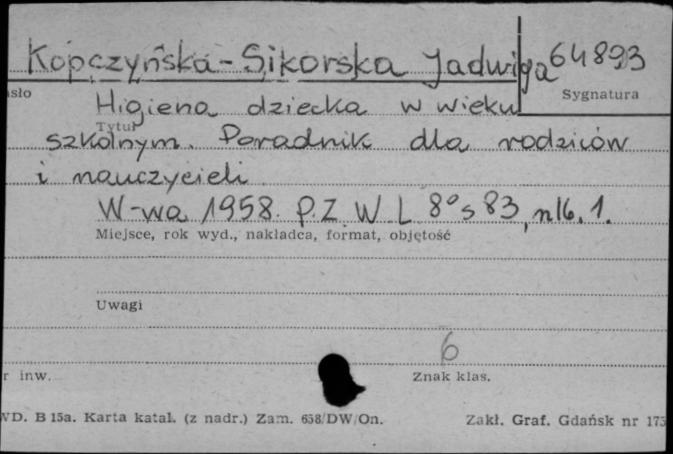 Kopczyńska-Sikorska Jadwiga 64893
asło Sygnatura
Higiena dziecka w wieku
Tytuł
szkolnym. Poradnik dla rodziców
i nauczycieli
W-wa 1958. P.Z.W.L 8° s 83,
Miejsce, rok wyd., nakładca, format, objętość
Uwagi
6
r inw. Znak klas.
WD. B 15a. Karta katal. (z nadr.) Zam. 658/DW/On. Zakł. Graf. Gdańsk nr 175